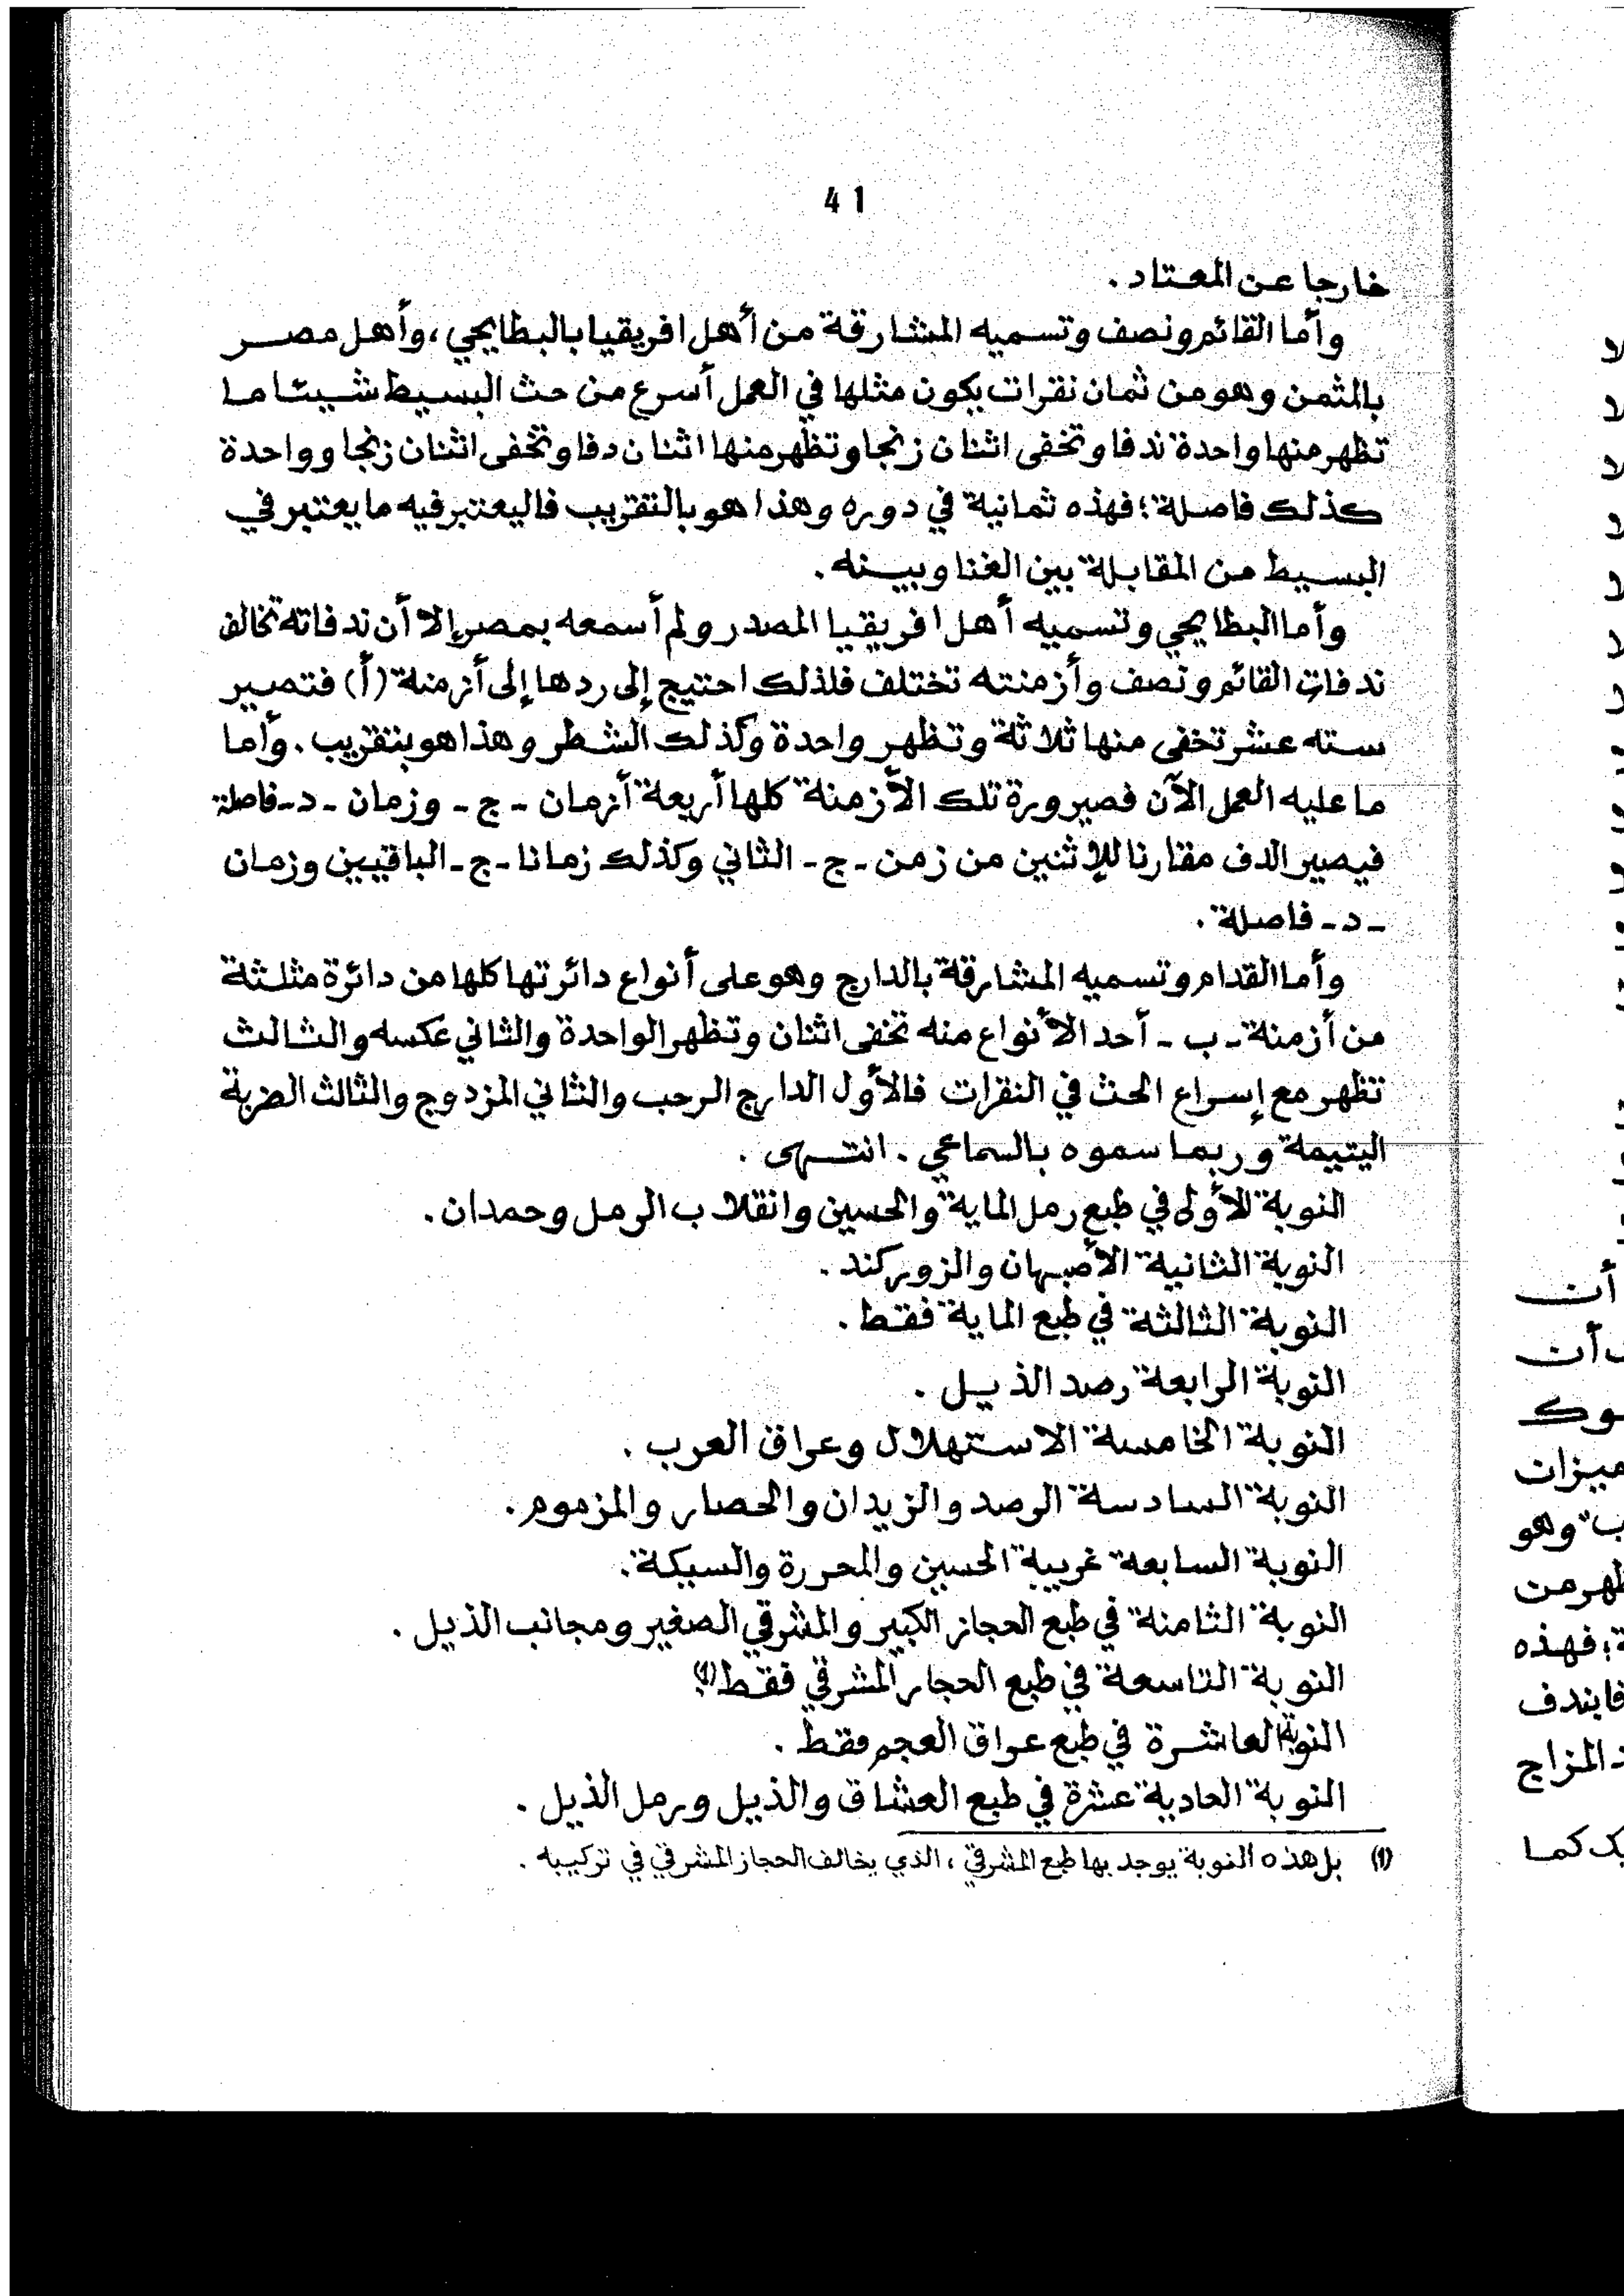 41
خارجا عن المعتاد .
وأما القائم ونصف وتسميه المشارقة من أهل افريقيا بالبطايحي، وأهل مصر
بالمثمن وهو من ثمان نقرات يكون مثلها في العمل أسرع من حث البسيط شيئا ما
تظهر منها واحدة ندفا وتخفى اثنان زنجا وتظهر منها اثنان دفا وتخفى اثنان زنجا وواحدة
كذلك فاصلة؛ فهذه ثمانية في دوره وهذا هو بالتقريب فاليعتبر فيه ما يعتبر في
البسيط من المقابلة بين الغنا وبينه .
وأما البطايحي وتسميه أهل افريقيا المصدر ولم أسمعه بمصر إلا أن ندفاته تخالف
ندفات القائم ونصف وأزمنته تختلف فلذلك احتيج إلى ردها إلى أزمنة (أ) فتصير
سته عشر تخفى منها ثلاثة وتظهر واحدة وكذلك الشطر وهذا هو بتقريب . وأما
ما عليه العمل الآن فصيرورة تلك الأزمنة كلها أربعة أزمان - ج - وزمان - د - فاصلة
فيصير الدف مقارنا للإثنين من زمن - ج - الثاني وكذلك زمانا - ج - الباقيين وزمان
- د - فاصلة .
وأما القدام وتسميه المشارقة بالدارج وهو على أنواع دائرتها كلها من دائرة مثلثة
من أزمنة - ب - أحد الأنواع منه تخفى اثنان وتظهر الواحدة والثاني عكسه والثالث
تظهر مع إسراع الحث في النقرات فالأول الدارج الرحب والثاني المزدوج والثالث الضربة
اليتيمة وربما سموه بالسماعي . انتهى .
النوبة الأولى في طبع رمل الماية والحسين وانقلاب الرمل وحمدان .
النوبة الثانية الأصبهان والزوركند .
النوبة الثالثة في طبع الماية فقط .
النوبة الرابعة رصد الذيل .
النوبة الخامسة الاستهلال وعراق العرب .
النوبة السادسة الرصد والزيدان والحصار والمزموم .
النوبة السابعة غريبة الحسين والمحررة والسيكة .
النوبة الثامنة في طبع الحجاز الكبير والمشرقي الصغير ومجانب الذيل .
النوبة التاسعة في طبع الحجاز المشرقي فقط (1)
النوبة العاشرة في طبع عراق العجم فقط .
النوبة الحادية عشرة في طبع العشاق والذيل ورمل الذيل .
(1) بل هذه النوبة يوجد بها طبع المشرقي ، الذي يخالف الحجاز المشرقي في تركيبه .